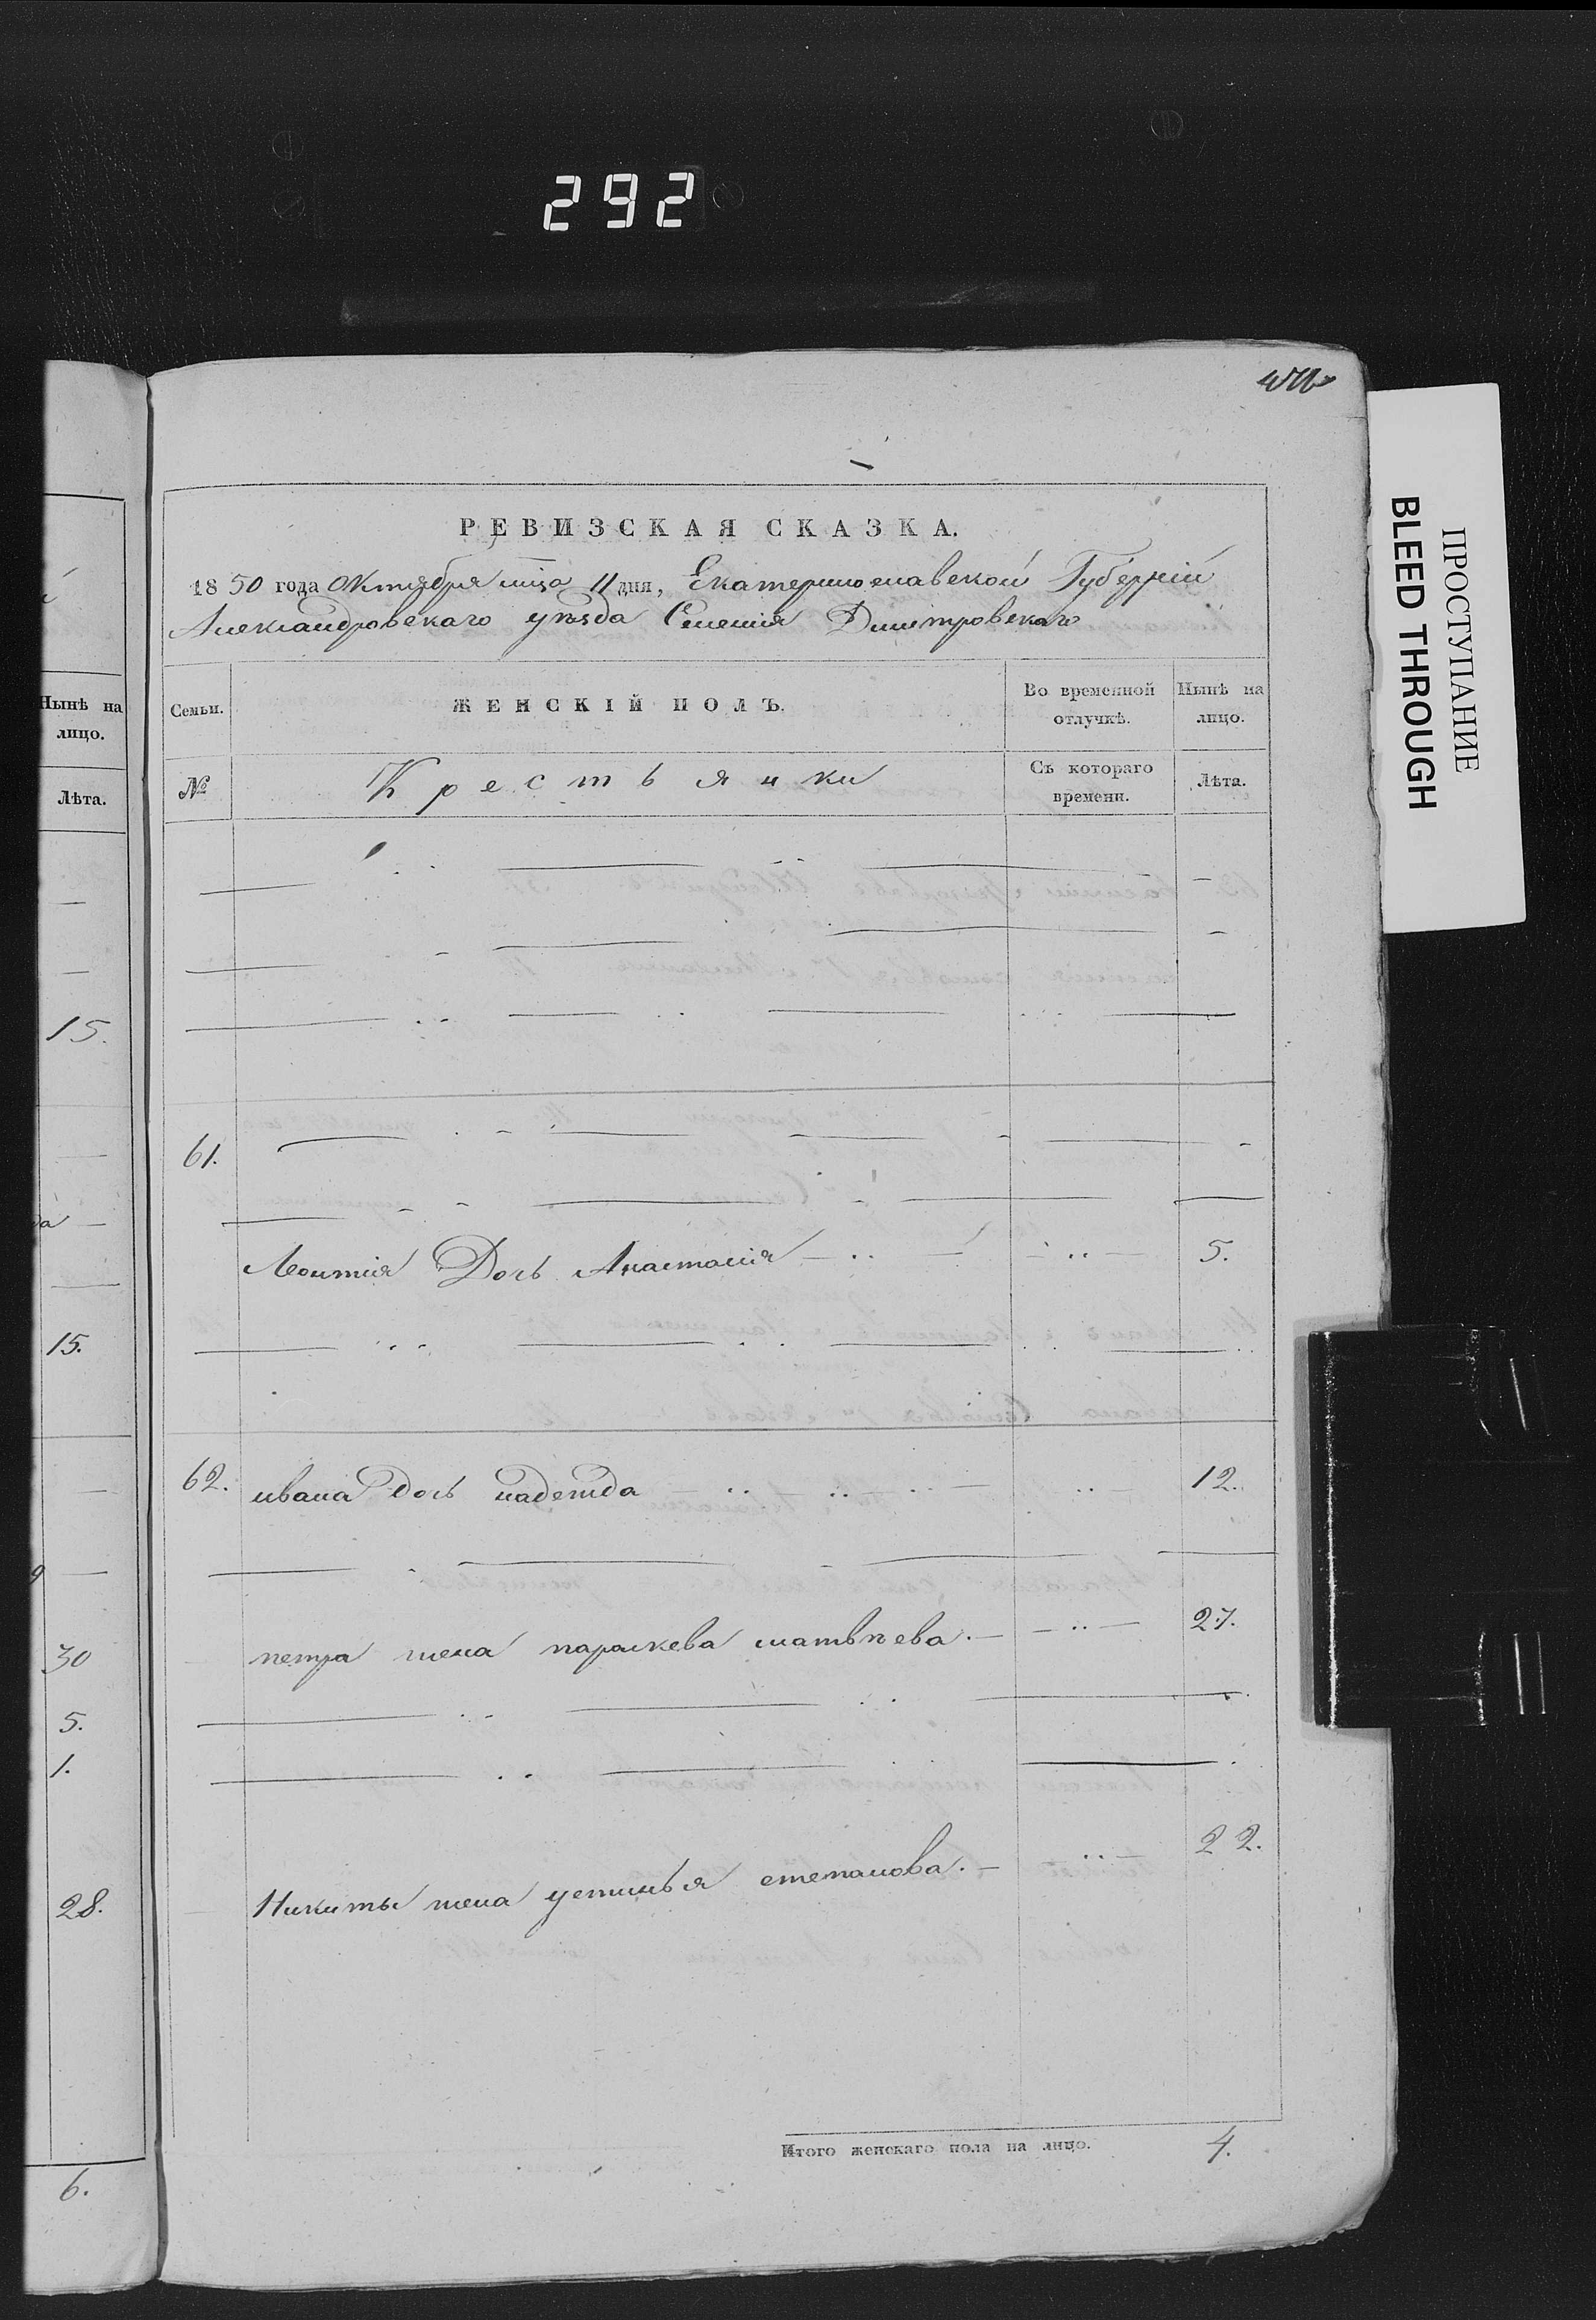 292
РЕВИЗСКАЯ СКАЗКА.
1850 года Октября мца 11 дня, Екатеринославской Губерніи
Александровскаго уѣзда Селенія Дмитровскаго
Нынѣ на лицо.
Лѣта.
15.
15.
30
5.
1.
28.
6.
Семьи.
ЖЕНСКІЙ ПОЛЪ.
Во временной отлучкѣ.
Нынѣ на лицо.
№
Крестьянки
Съ котораго времени.
Лѣта.
61.
Леонтія Дочь Анастасія 5.
62. ивана дочь надежда 12.
петра жена параскева матвѣева. 27.
Никиты жена устинья степанова. 22.
Итого женскаго пола на лицо. 4.
ПРОСТУПАНИЕ
BLEED THROUGH